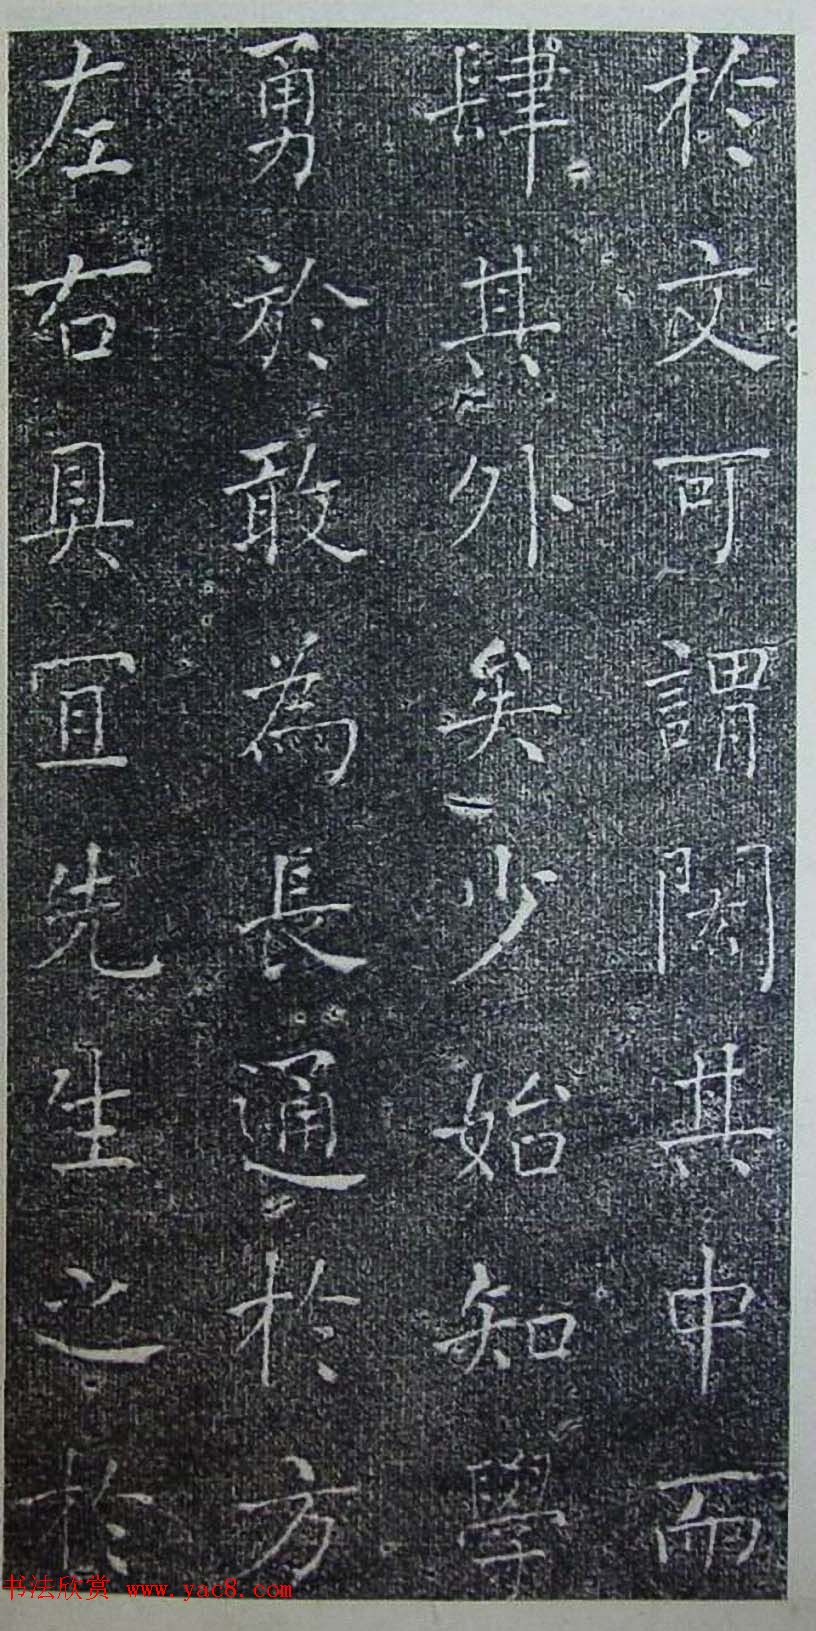 於文可謂閎其中而
肆其外矣少始知學
勇於敢為長通於方
左右具宜先生之於
书法欣赏 www.yac8.com